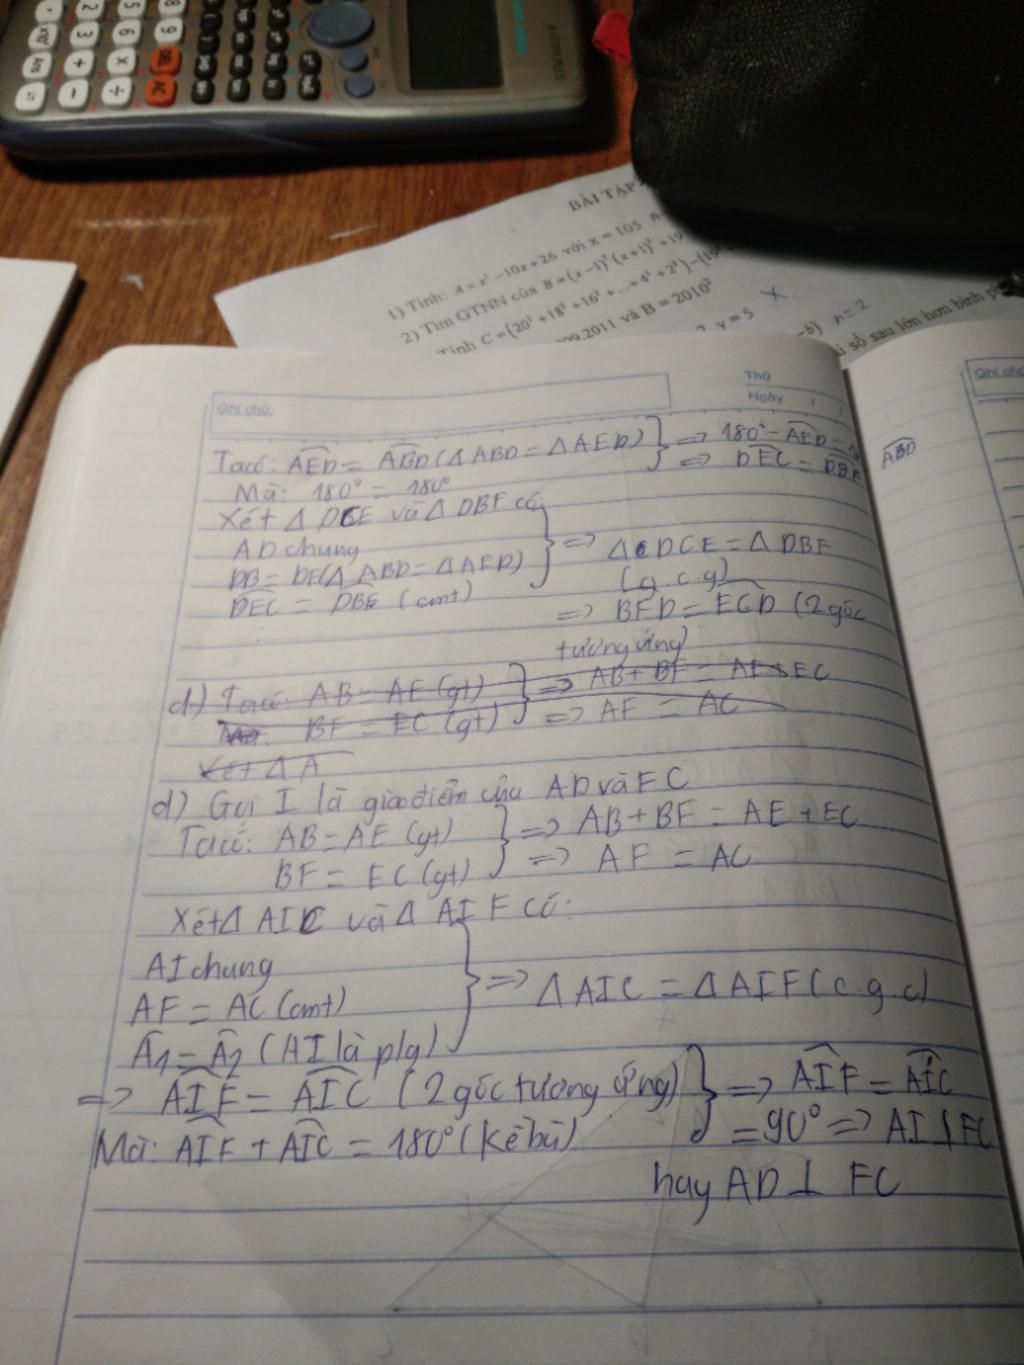 BÀI TẬP
1) Tính: A = x² −10x+26 với x = 105
2) Tìm GTNN của B = (x−1)² (x+1)² +19
Tính C = (20² +18² +16² +...+4² +2²)−(19²
009.2011 và B = 2010²
y = 5
−b) n = 2
số sau lớn hơn bình
Ghi chú:
Thứ
Ngày / /
Ghi chú
ABD
Ta có: AED = ABD (Δ ABD = Δ AED) } => 180° - AED =
Mà: 180° = 180° => DEC = DBF
Xét Δ DCE và Δ DBF có
AD chung
DB = DE (Δ ABD = Δ AED) } => Δ DCE = Δ DBF
DEC = DBF (cmt) (g c g)
=> BFD = ECD (2 góc
tương ứng)
d) Ta có: AB = AE (gt) } => AB + BF = AE + EC
BF = EC (gt) => AF = AC
Xét Δ A
d) Gọi I là giao điểm của AD và FC
Ta có: AB = AE (gt) } => AB + BF = AE + EC
BF = EC (gt) => AF = AC
Xét Δ AIC và Δ AIF có:
AI chung
AF = AC (cmt) } => Δ AIC = Δ AIF (c.g.c)
A1 = A2 (AI là p/g)
=> AIF = AIC (2 góc tương ứng) } => AIF = AIC
Mà: AIF + AIC = 180° (kề bù) = 90° => AI ⊥ FC
hay AD ⊥ FC